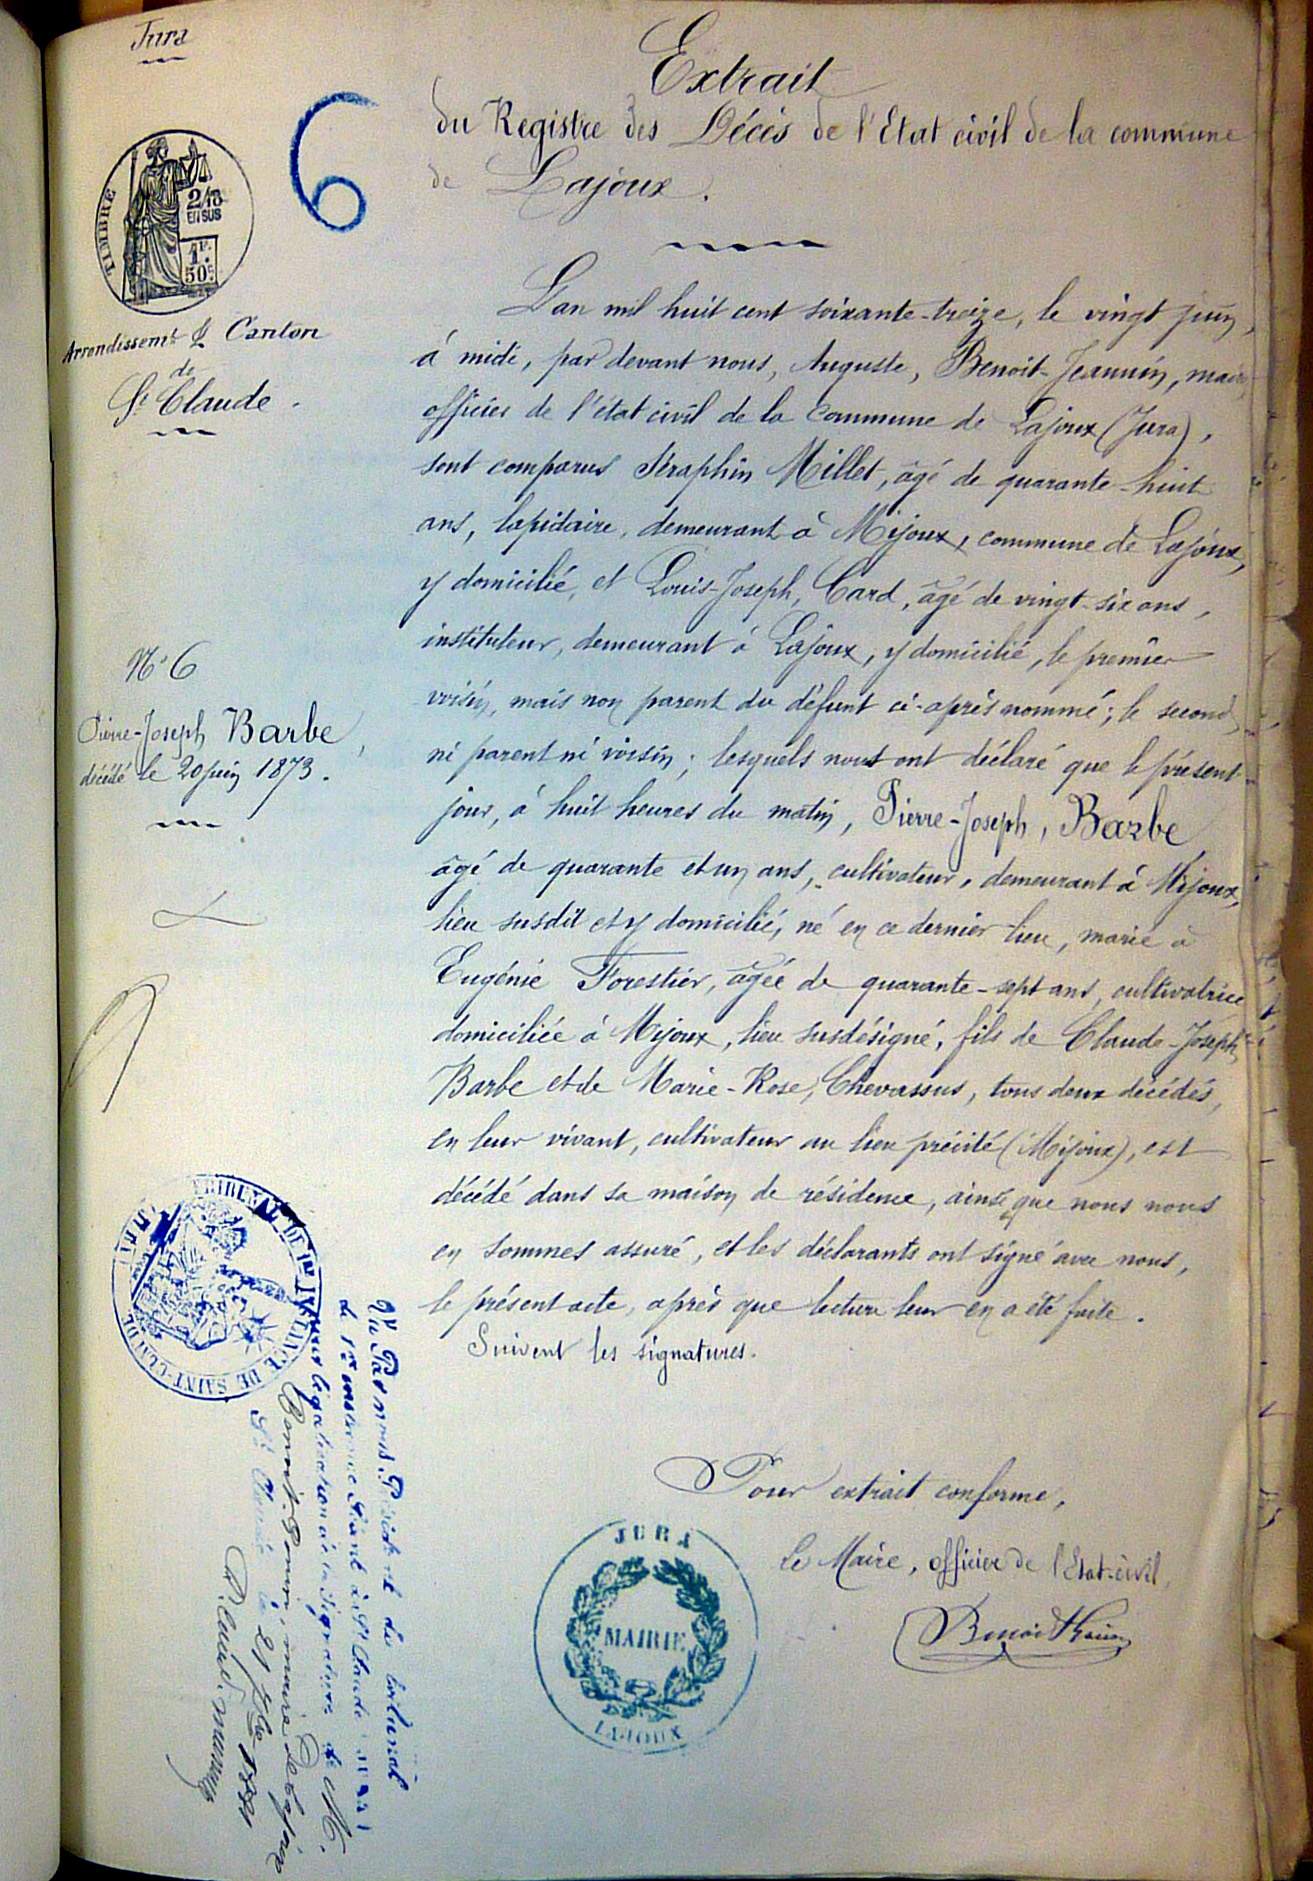 Jura
6
TIMBRE
2/10
EN SUS
1F.
50c.
Arrondissemt & Canton
de
St Claude.
Extrait
du Registre des Décès de l'Etat civil de la commune
de Lajoux.
L'an mil huit cent soixante-treize, le vingt juin,
à midi, par devant nous, Auguste, Benoit-Jeannin, maire,
officier de l'état civil de la commune de Lajoux (Jura),
sont comparus Séraphin Millet, âgé de quarante-huit
ans, lapidaire, demeurant à Mijoux, commune de Lajoux,
y domicilié, et Louis-Joseph, Card, âgé de vingt-six ans,
instituteur, demeurant à Lajoux, y domicilié, le premier
voisin, mais non parent du défunt ci-après nommé; le second
ni parent ni voisin; lesquels nous ont déclaré que le présent
jour, à huit heures du matin, Pierre-Joseph, Barbe
âgé de quarante et un ans, cultivateur, demeurant à Mijoux,
lieu susdit et y domicilié, né en ce dernier lieu, marié à
Eugénie Forestier, âgée de quarante-sept ans, cultivatrice
domiciliée à Mijoux, lieu susdésigné, fils de Claude-Joseph
Barbe et de Marie-Rose, Chevassus, tous deux décédés,
en leur vivant, cultivateur au lieu précité (Mijoux), est
décédé dans sa maison de résidence, ainsi que nous nous
en sommes assuré, et les déclarants ont signé avec nous,
le présent acte, après que lecture leur en a été faite.
Suivent les signatures.
N° 6
Pierre-Joseph Barbe,
décédé le 20 juin 1873.
Pour extrait conforme,
Le Maire, officier de l'Etat-civil,
JURA
MAIRIE
LAJOUX
TRIBUNAL DE 1re INSTANCE DE SAINT-CLAUDE
Vu Par nous Président du tribunal
de 1re instance Séant à St Claude (Jura)
pour légalisation de la Signature de M.
maire de Lajoux
St Claude le